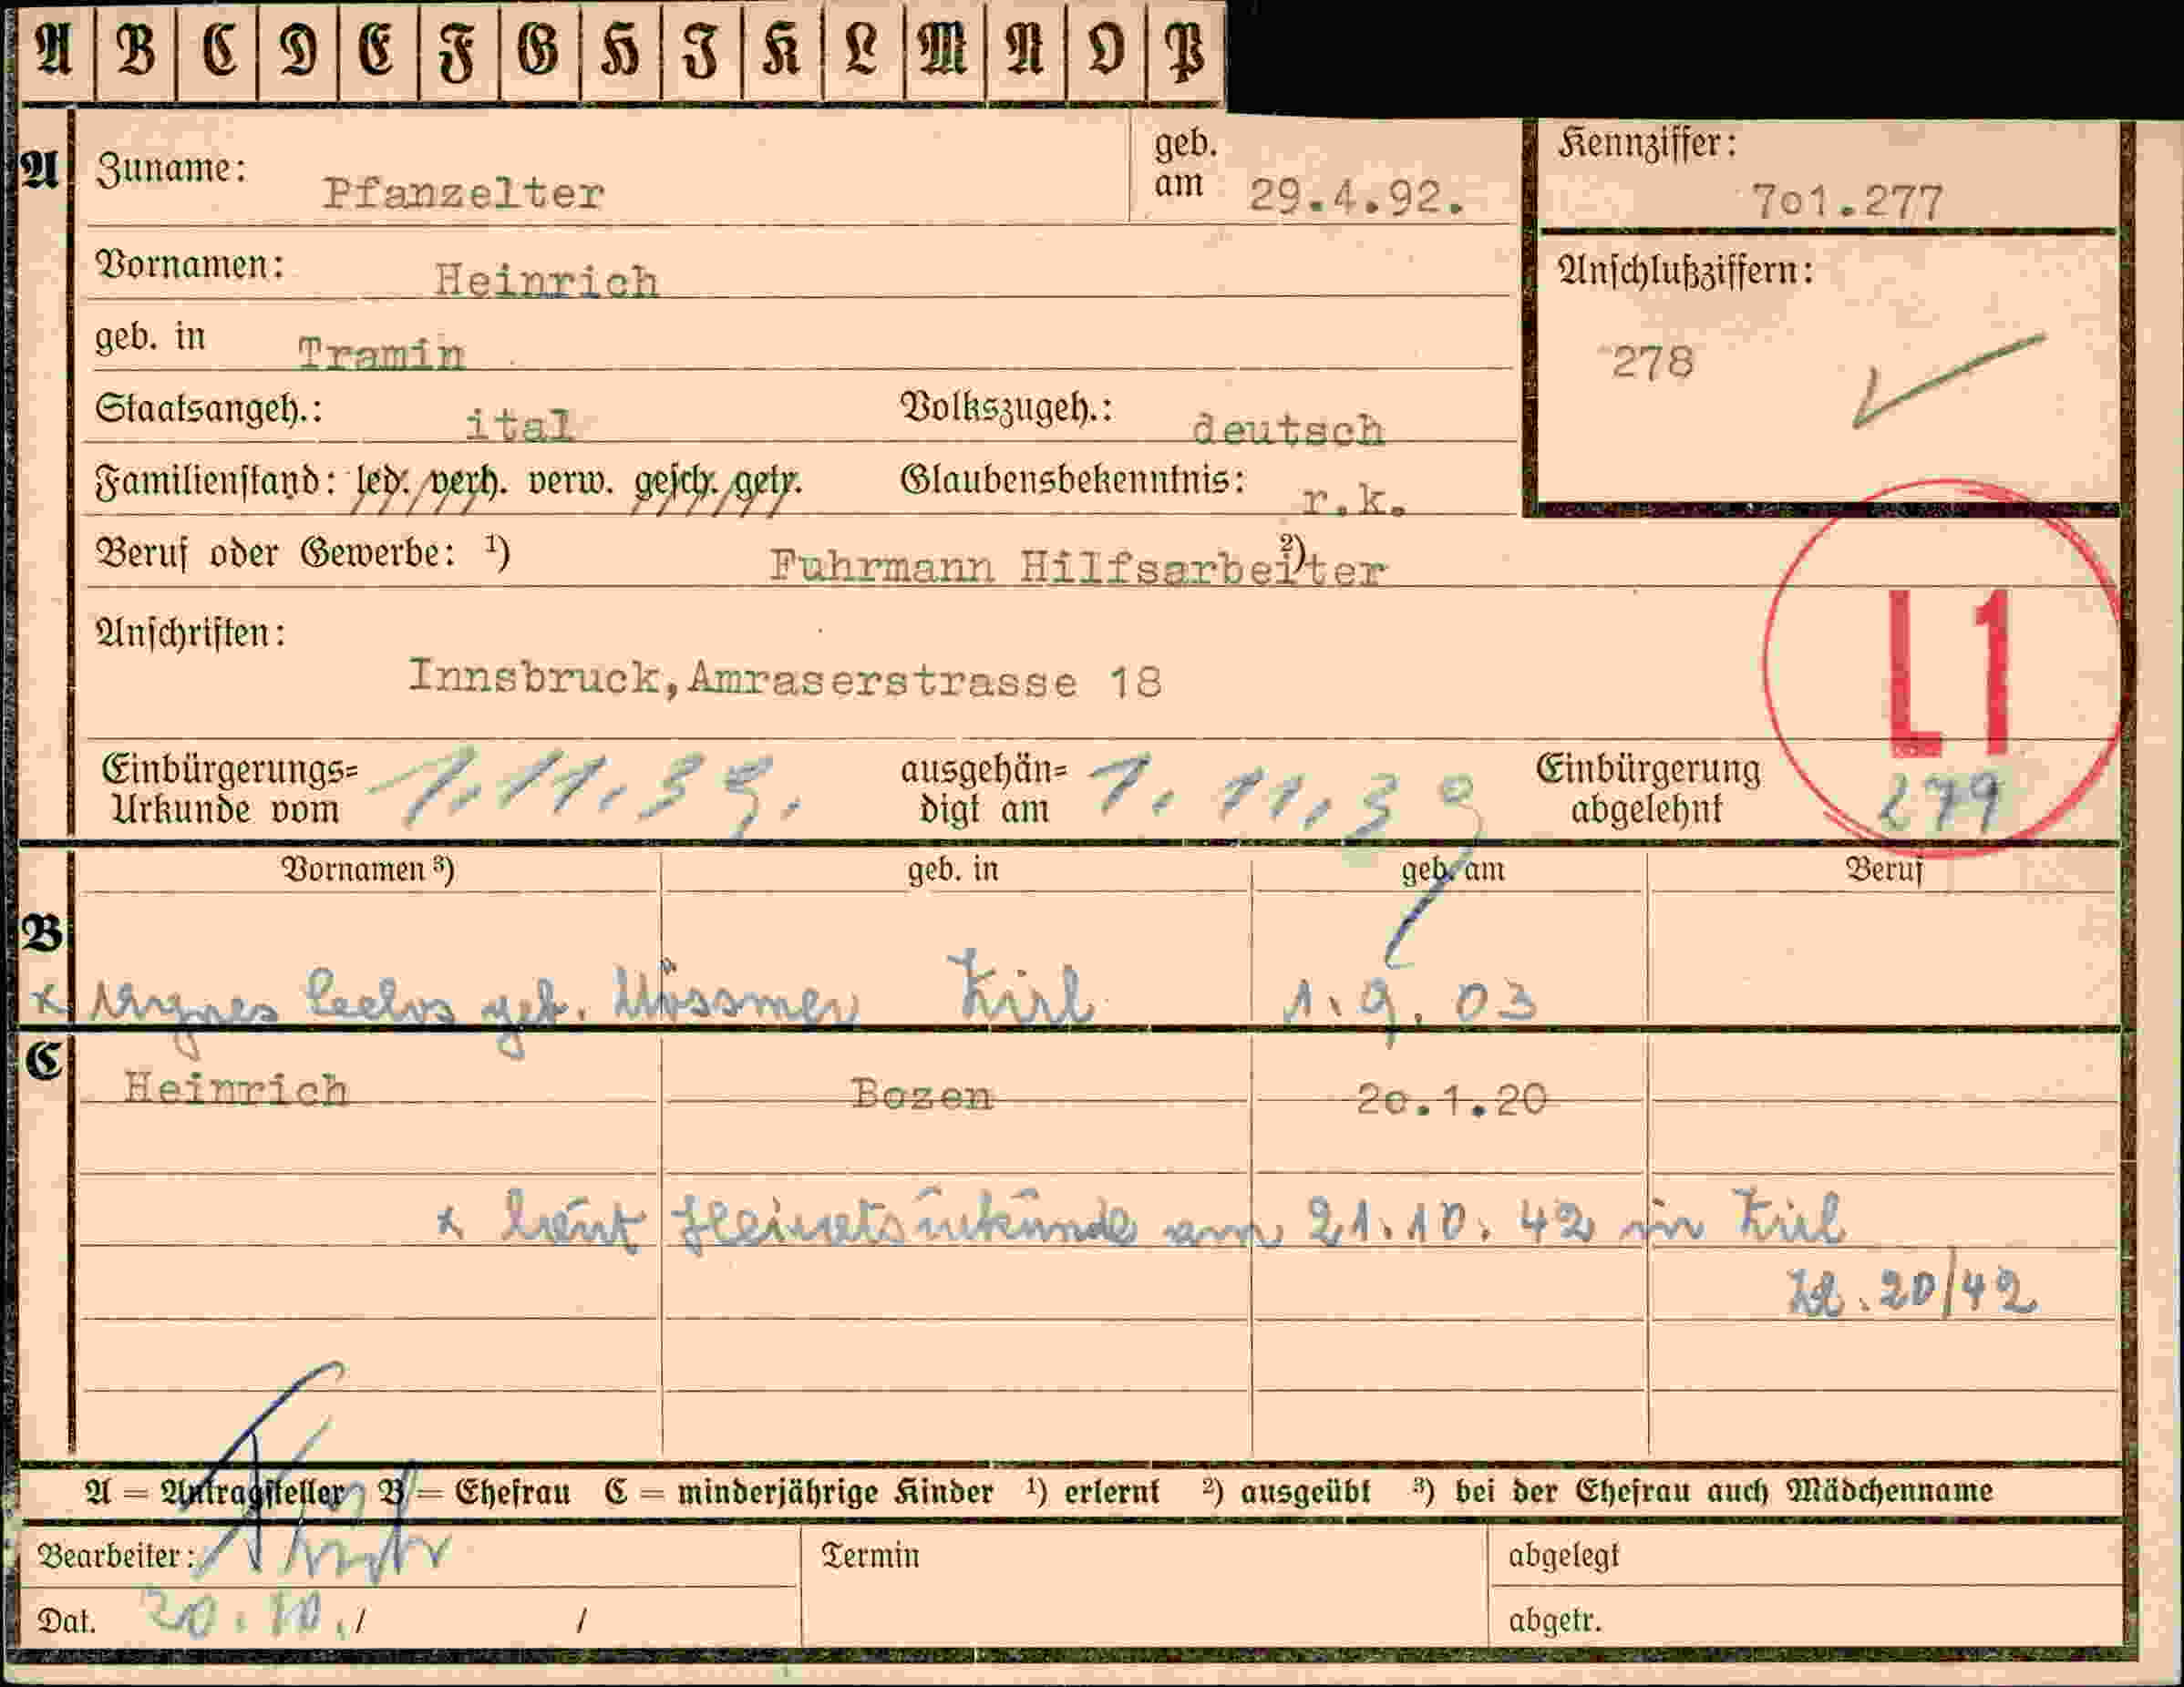 A B C D E F G H J K L M N O P
A Zuname: Pfanzelter geb. am 29.4.92. Kennziffer: 7o1.277
Vornamen: Heinrich Anschlußziffern:
geb. in Tramin 278
Staatsangeh.: ital Volkszugeh.: deutsch
Familienstand: led. verh. verw. gesch. getr. Glaubensbekenntnis: r.k.
Beruf oder Gewerbe: ¹) Fuhrmann Hilfsarbeiter ²)
Anschriften: L1
Innsbruck,Amraserstrasse 18
Einbürgerungs= Urkunde vom 1.11.39. ausgehän= digt am 1.11.39 Einbürgerung abgelehnt 279
Vornamen ³) geb. in geb. am Beruf
B
x Agnes geb. Mössmer Zirl 1.9.03
C
Heinrich Bozen 2o.1.20
x laut Heiratsurkunde am 21.10.42 in Zirl
Zl. 20/42
A = Antragsteller B = Ehefrau C = minderjährige Kinder ¹) erlernt ²) ausgeübt ³) bei der Ehefrau auch Mädchenname
Bearbeiter: Termin abgelegt
Dat. 20.10./ / abgetr.